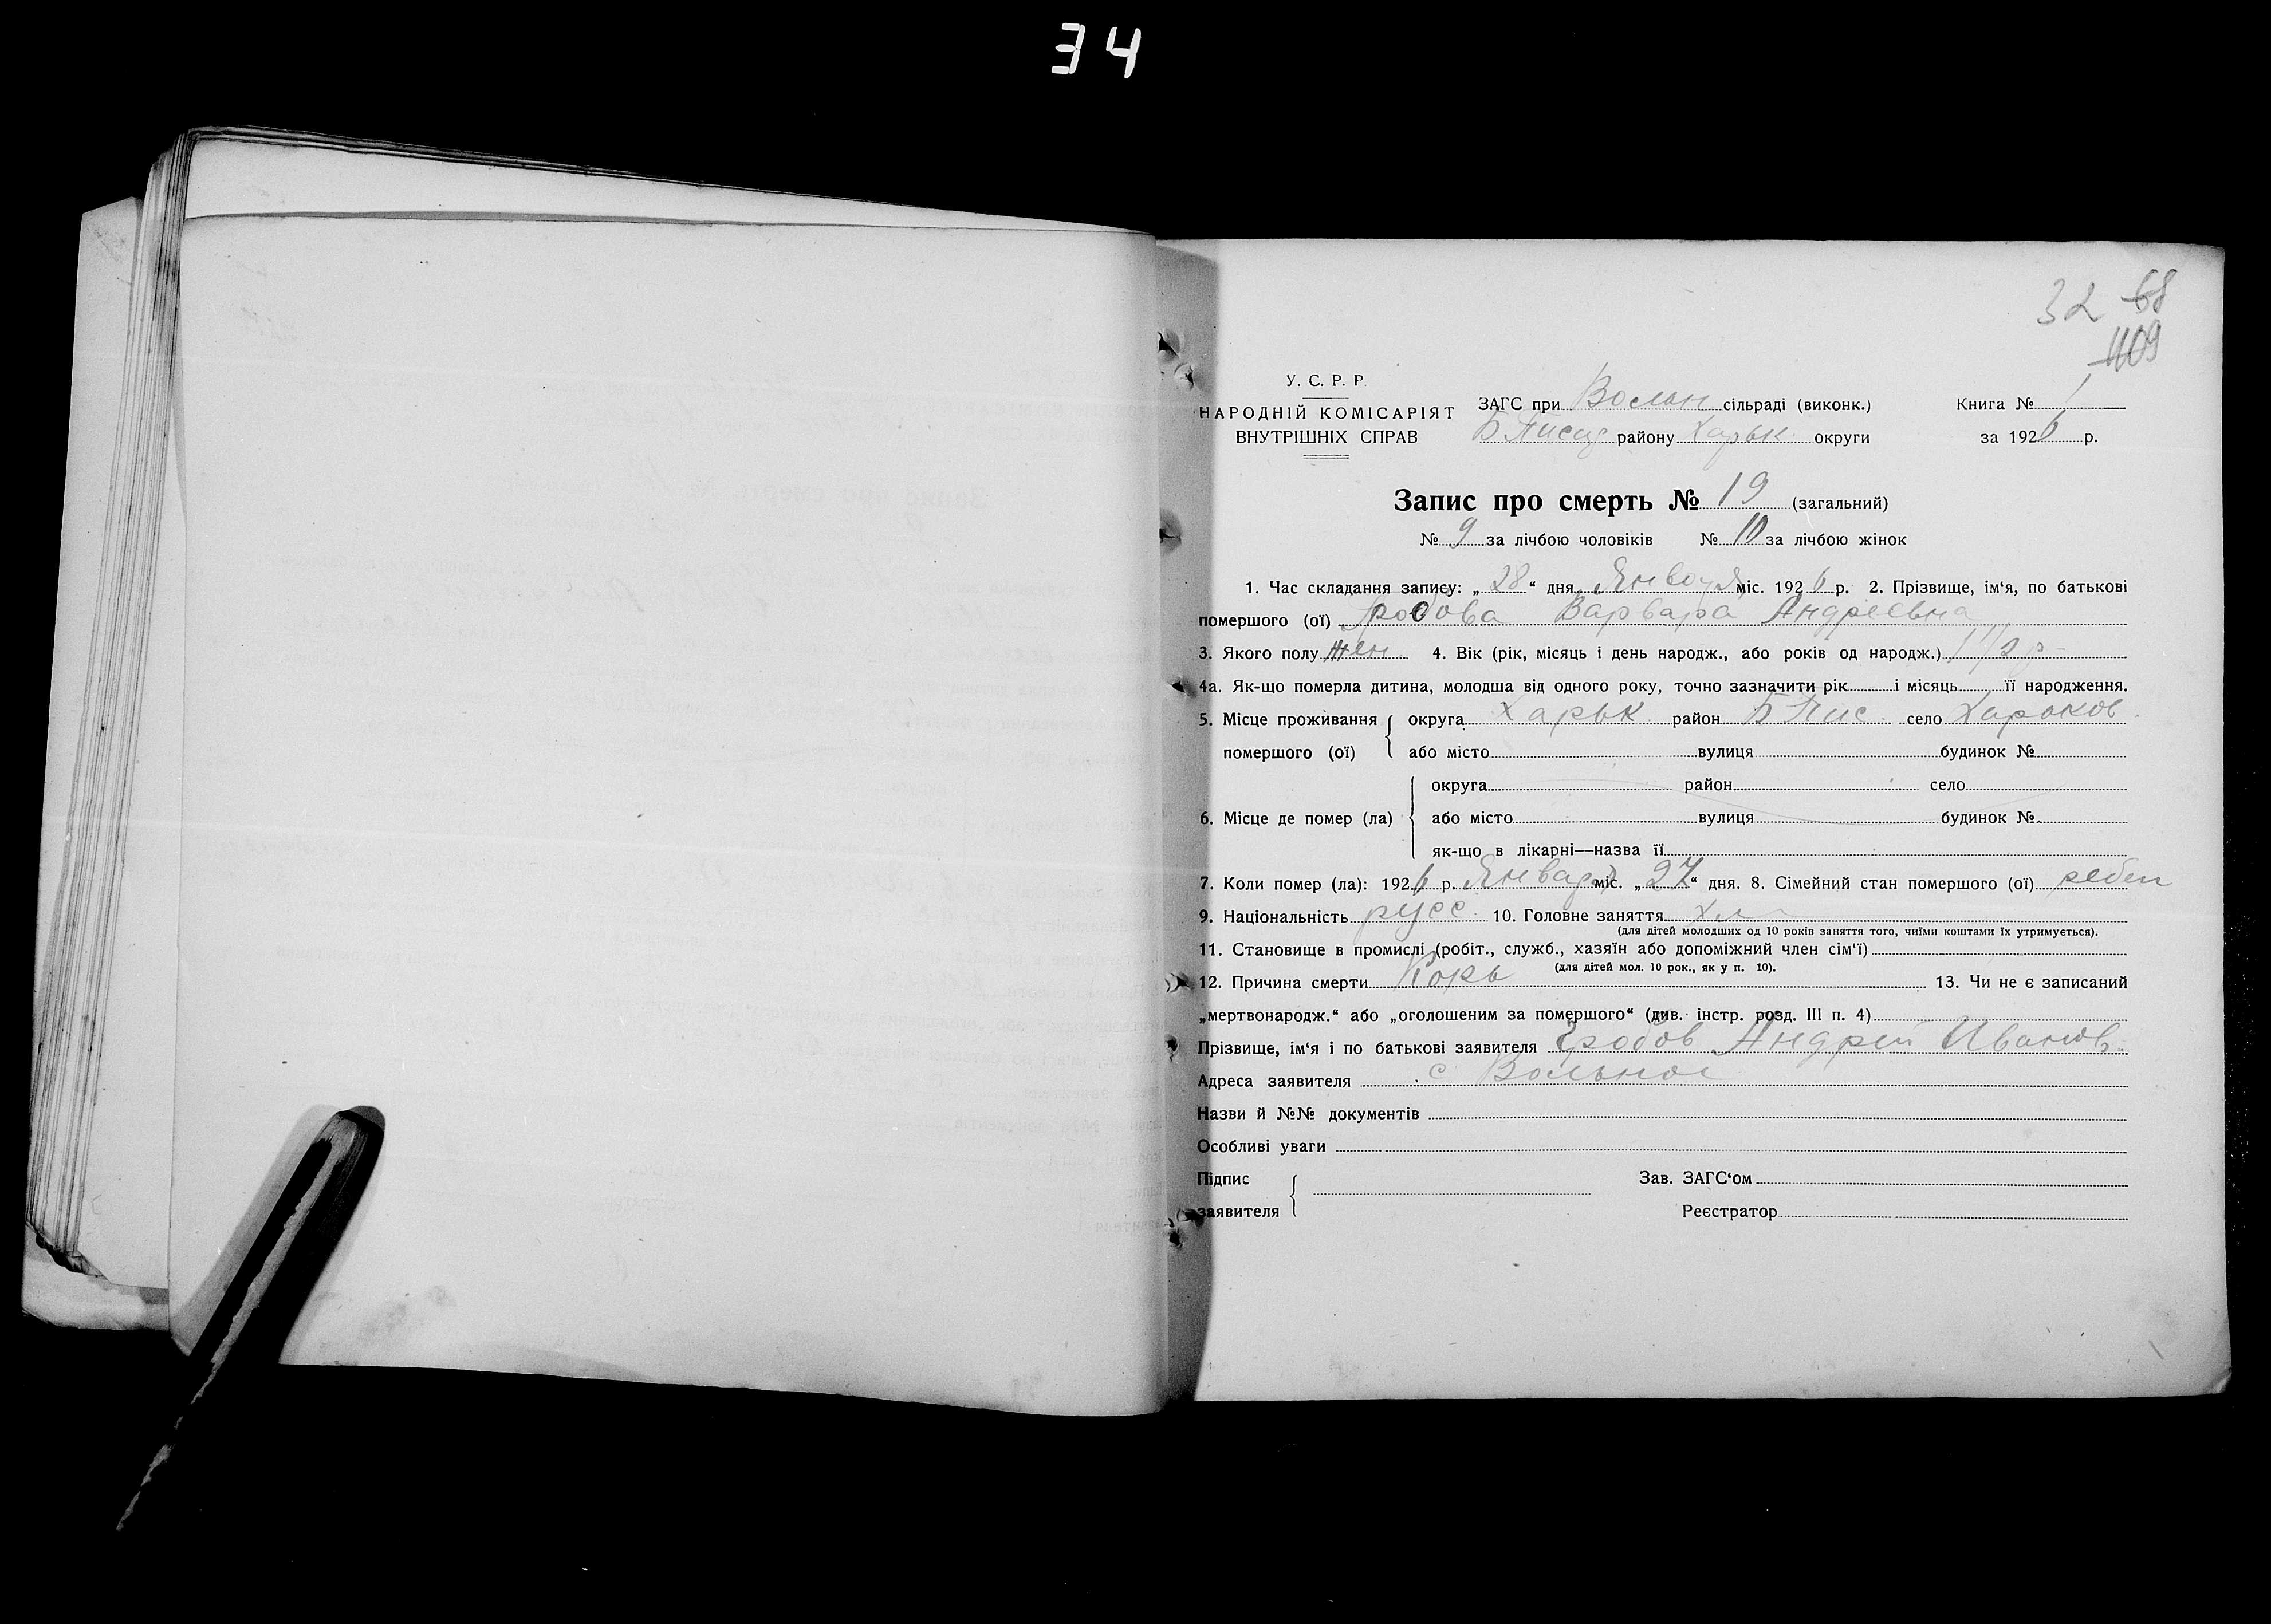 34
32 68
1109
У. С. Р. Р.
НАРОДНІЙ КОМІСАРІЯТ
ВНУТРІШНІХ СПРАВ
ЗАГС при Вольн сільраді (виконк.)
Б Писар району Харьк округи
Книга № 1
за 1926 р.
Запис про смерть № 19 (загальний)
№ 9 за лічбою чоловіків № 10 за лічбою жінок
1. Час складання запису: „28“ дня Января міс. 1926 р. 2. Прізвище, ім‘я, по батькові
помершого (ої) Гробова Варвара Андреевна
3. Якого полу жен 4. Вік (рік, місяць і день народж., або років од народж.) 1 1/2 р
4а. Як-що померла дитина, молодша від одного року, точно зазначити рік і місяць її народження.
5. Місце проживання округа Харьк район Б Пис село
помершого (ої) або місто вулиця будинок №
округа район село
6. Місце де помер (ла) або місто вулиця будинок №
як-що в лікарні—назва її
7. Коли помер (ла): 1926 р. Января міс. „27“ дня. 8. Сімейний стан помершого (ої) ребен
9. Національність русс 10. Головне заняття
(для дітей молодших од 10 років заняття того, чиїми коштами їх утримується).
11. Становище в промислі (робіт., служб., хазяїн або допоміжний член сім‘ї)
(для дітей мол. 10 рок., як у п. 10).
12. Причина смерти Корь 13. Чи не є записаний
„мертвонародж.“ або „оголошеним за помершого“ (див. інстр. розд. III п. 4)
Прізвище, ім‘я і по батькові заявителя Гробов Андрей Иванов
Адреса заявителя с Вольное
Назви й №№ документів
Особливі уваги
Підпис
заявителя
Зав. ЗАГС‘ом
Реєстратор